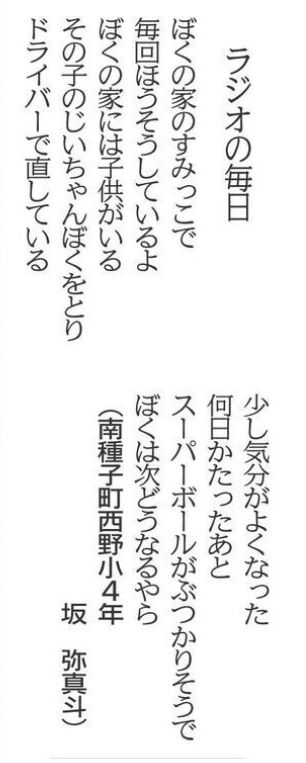 ラジオの毎日
ぼくの家のすみっこで
毎回ほうそうしているよ
ぼくの家には子供がいる
その子のじいちゃんぼくをとり
ドライバーで直している
少し気分がよくなった
何日かたったあと
スーパーボールがぶつかりそうで
ぼくは次どうなるやら
（南種子町西野小４年
坂　弥真斗）